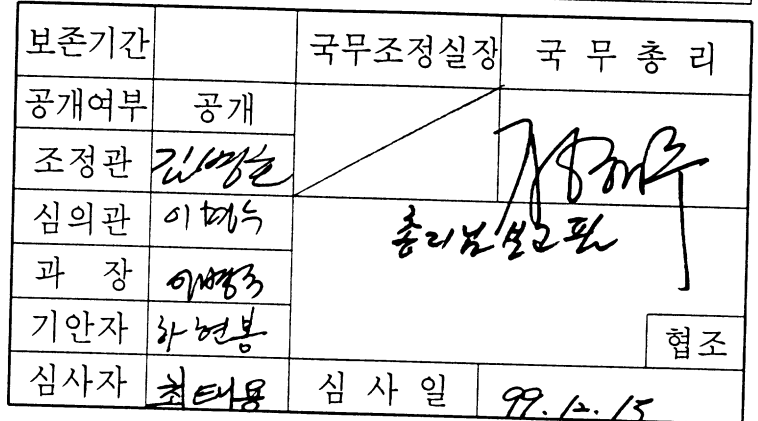 보존기간 국무조정실장 국 무 총 리
공개여부 공개
조정관
심의관
과 장
총리님 보고필
기안자 하현봉
협조
심사자 최태용 심 사 일 99. 12. 15